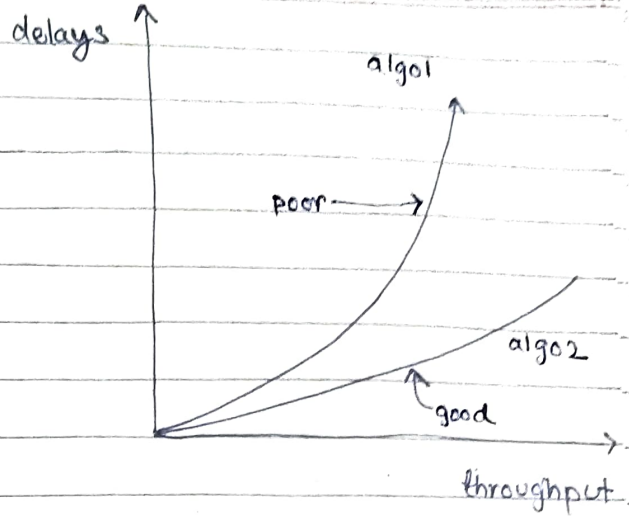 delays
algo1
poor
algo2
good
throughput